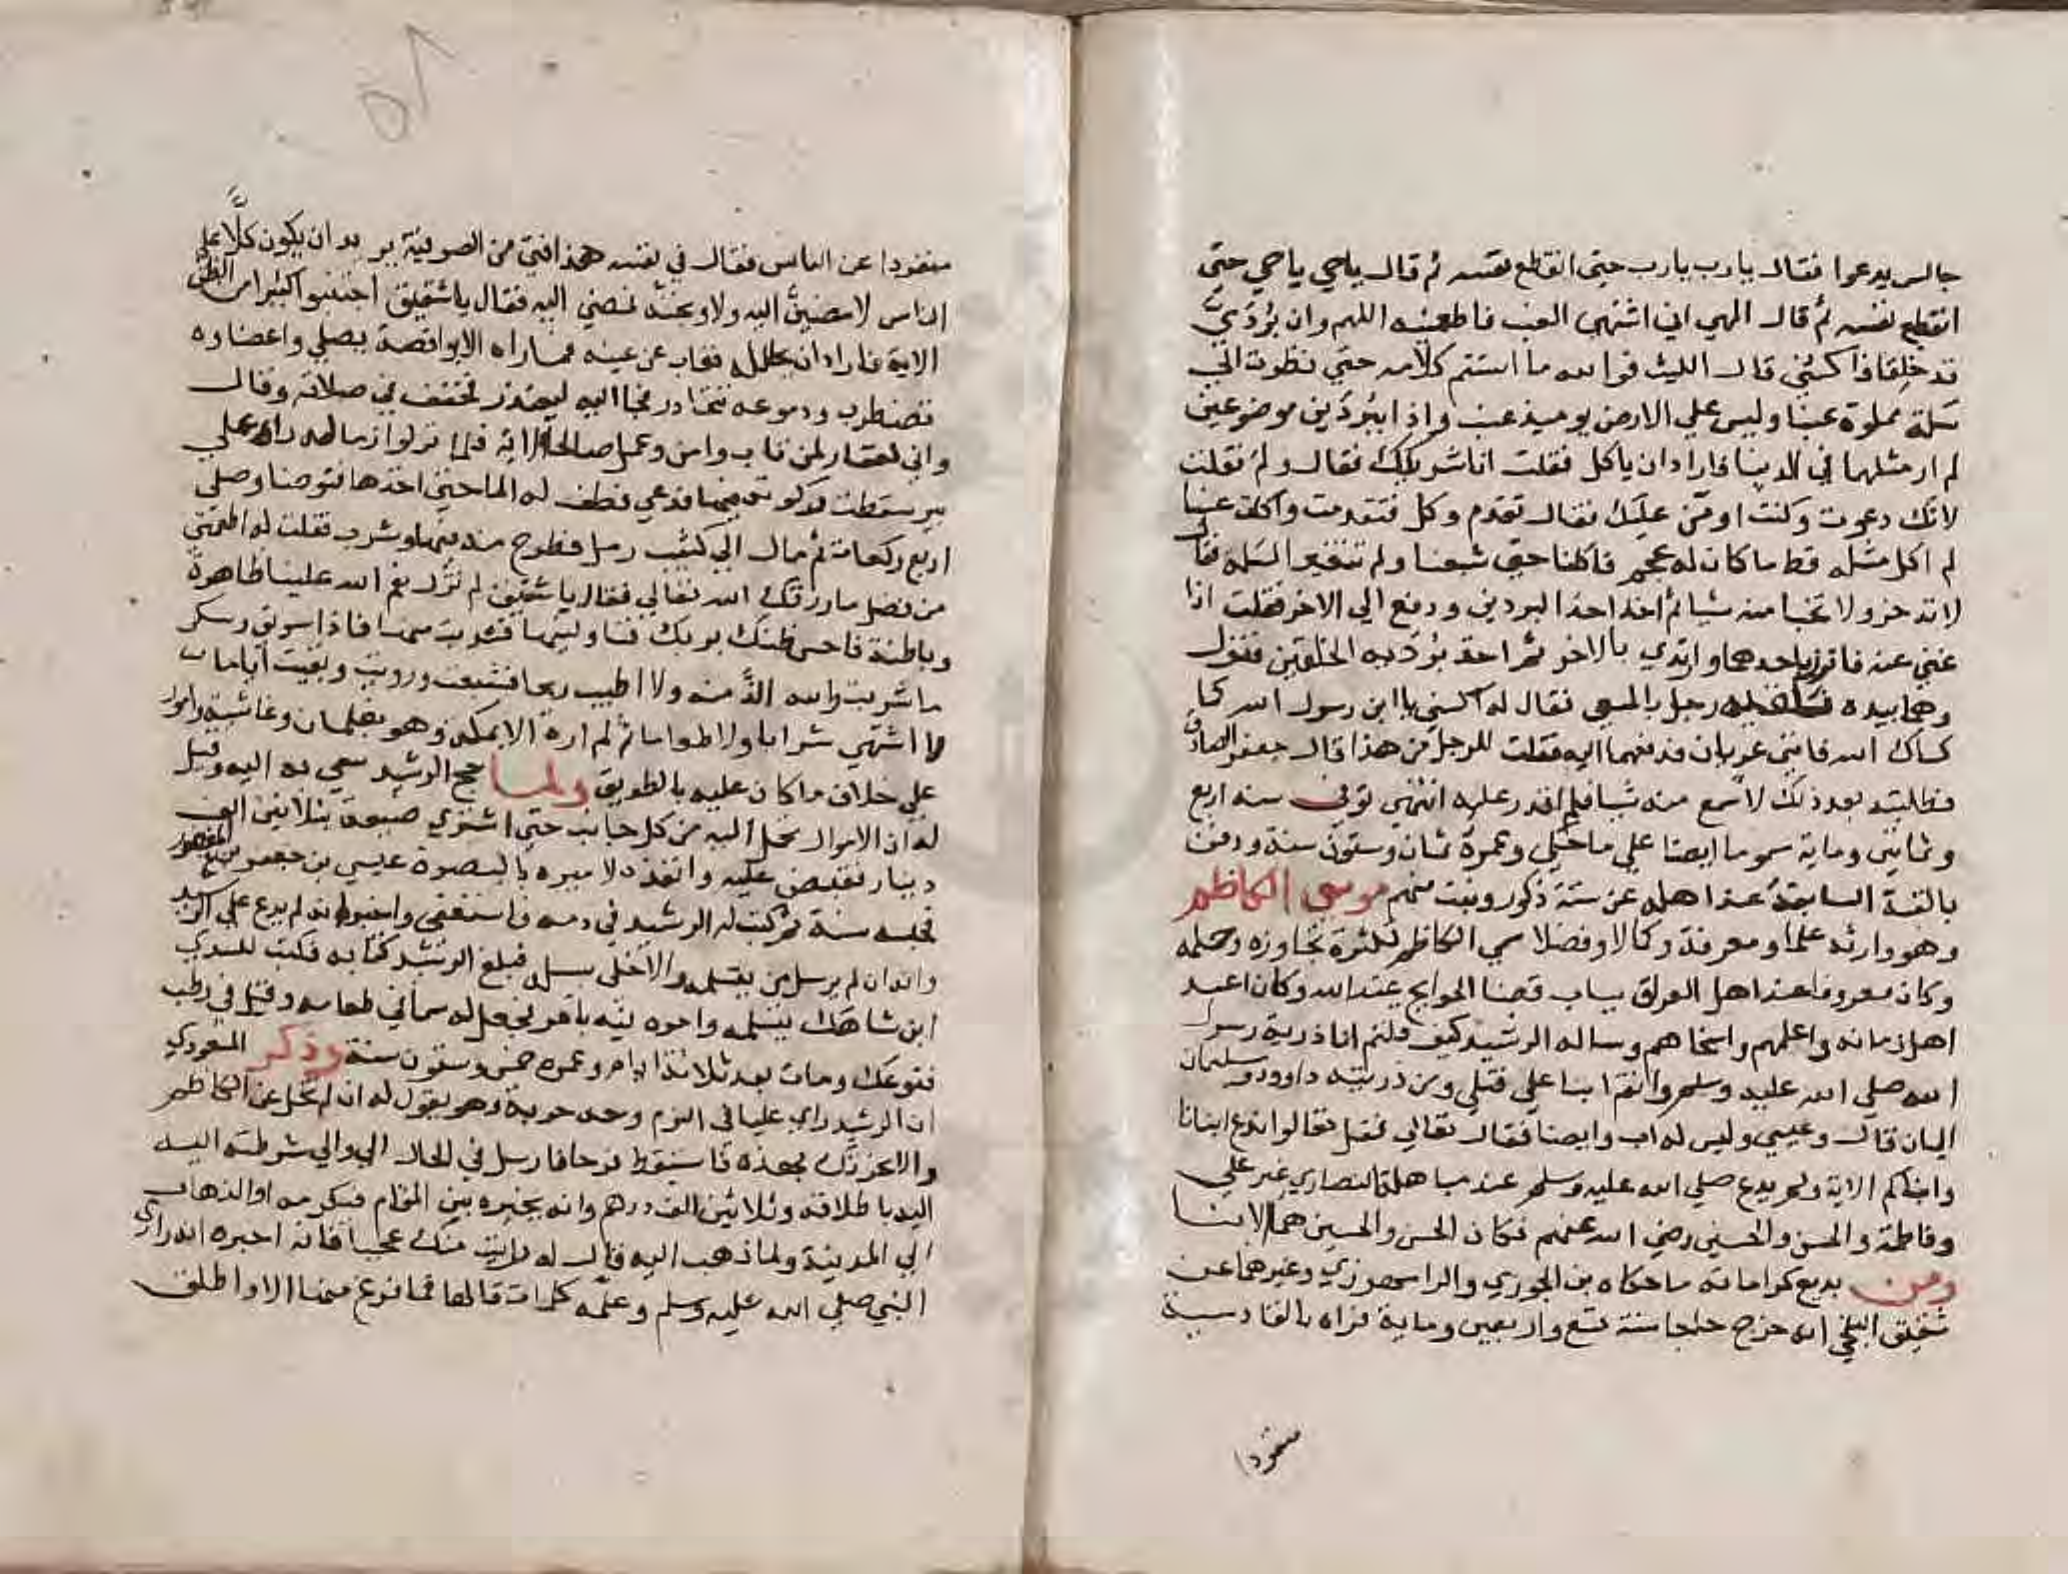 جالس يدعوا فقال يارب يارب حتى انقطع نفسه ثم قال ياحي ياحي حتى
انقطع نفسه ثم قال الهي اني اشتهي العنب فاطعمنيه اللهم وان بُرْدَيَّ
قد خلقا فاكسني قال الليث فوالله ما استتم كلامه حتى نظرت الى
سلة مملوة عنبا وليس علي الارض يوميذ عنب واذا ببردين موضوعين
لم ار مثلهما في الدنيا فاراد ان ياكل فقلت انا شريكك فقال ولم فقلت
لانك دعوت وكنت اومن عليك فقال تقدم وكل فتقدمت واكلت عنبا
لم اكل مثله قط ما كان له عجم فاكلنا حتى شبعنا ولم تتغير السلة فقال
لا تدخر ولا تخبا منه شيا ثم اخذ احد البردين ودفع الي الاخر فقلت انا
غني عنه فاتزر باحدهما وارتدي بالاخر ثم اخذ بُرْدَيه الخلقين فنزل
وهما بيده رجل بالمسعى فقال له اكسني يا ابن رسول الله كما
كساك الله فانني عريان فدفعهما اليه فقلت للرجل من هذا قال جعفر الصادق
فطلبته بعد ذلك لاسمع منه شيا فلم اقدر عليه انتهى توفى سنة اربع
وثمانين وماية مسموما ايضا علي ما حكي وعمره ثمان وستون سنة ودفن
بالقبة السابقة عند اهله عن ستة ذكور وبنت منهم موسى الكاظم
وهو وارثه علما ومعرفة وكمالا وفضلا سمي الكاظم لكثرة تجاوزه وحلمه
وكان معروفا عند اهل العراق بباب قضا الحوايج عند الله وكان اعبد
اهل زمانه واعلمهم واسخاهم وساله الرشيد كيف قلتم انا ذرية رسول
الله صلى الله عليه وسلم وانتم ابنا علي فتلى ومن ذريته داوود وسليمان
الى ان قال وعيسي وليس له اب وايضا فقال تعالي فقل تعالوا ندع ابنانا
وابناكم الاية ولم يدع صلي الله عليه وسلم عند مباهلة النصاري غير علي
وفاطمة والحسن والحسين رضي الله عنهم فكان الحسن والحسين هما الابنا
ومن بديع كراماته ما حكاه بن الجوزي والرامهرمزي وغيرهما عن
شقيق البلخي انه خرج حاجا سنة تسع واربعين وماية فراه بالقادسية
منفردا
منفردا عن الناس فقال في نفسه هذا فتى من الصوفية يريد ان يكون كلًّا على
الناس لامضين اليه ولاوبخنه فمضي اليه فقال يا شقيق اجتنبوا كثيرا من الظن
الاية فاراد ان يحلله فغاب عن عينه فما راه الا بواقصة يصلي واعضاوه
تضطرب ودموعه تتحادر فجا اليه ليعتذر فخفف في صلاته وقال
واني لغفار لمن تاب وامن وعمل صالحا الاية فلما نزلوا زمالة راه علي
بير سقطت ركوته فيها فدعي فطف له الما حتى اخذها فتوضا وصلى
اربع ركعات ثم مال الي كثيب رمل فطرح منه فيها وشرب فقلت له اطعمني
من فضل ما رزقك الله تعالي فقال يا شقيق لم تزل نعم الله علينا ظاهرة
وباطنة فاحسن ظنك بربك فناولنيها فشربت منها فاذا سويق وسكر
ما شربت والله الذ منه ولا اطيب ريحا فشبعت ورويت وبقيت اياما
لا اشتهي شرابا ولا طعاما ثم لم اره الا بمكة وهو بغلمان وغاشية وامور
على خلاف ما كان عليه بالطريق ولما حج الرشيد سعي به اليه وقيل
له ان الاموال تحمل اليه من كل جانب حتى اشتري ضيعة بثلاثين الف
دينار فقبض عليه وانفذه لاميره بالبصرة عيسي بن جعفر بن المنصور
فحبسه سنة ثم كتب له الرشيد في دمه فاستعفى واخبر انه لم يدع علي الرشيد
وانه ان لم يرسل من يتسلمه والا خلى سبيله فبلغ الرشيد كتابه فكتب للسدي
ابن شاهك يتسلمه وامره فيه بامر فجعل له سما في طعامه وقيل في رطب
فتوعك ومات بعد ثلاثة ايام وعمره خمس وستون سنة وذكر المسعودي
ان الرشيد راي عليا في النوم وحده حربة وهو يقول له ان لم تخل عن الكاظم
والا نحرتك بهذه فاستيقظ فزعا فارسل في الحال الي والي شرطته اليه
اليه باطلاقه وثلاثين الف درهم وانه يخيره بين المقام فيكرمه او الذهاب
الي المدينة ولما ذهب اليه قال له رايت منك عجبا فانه اخبره انه راي
النبي صلي الله عليه وسلم وعلمه كلمات قالها فما فرغ منها الا واطلق